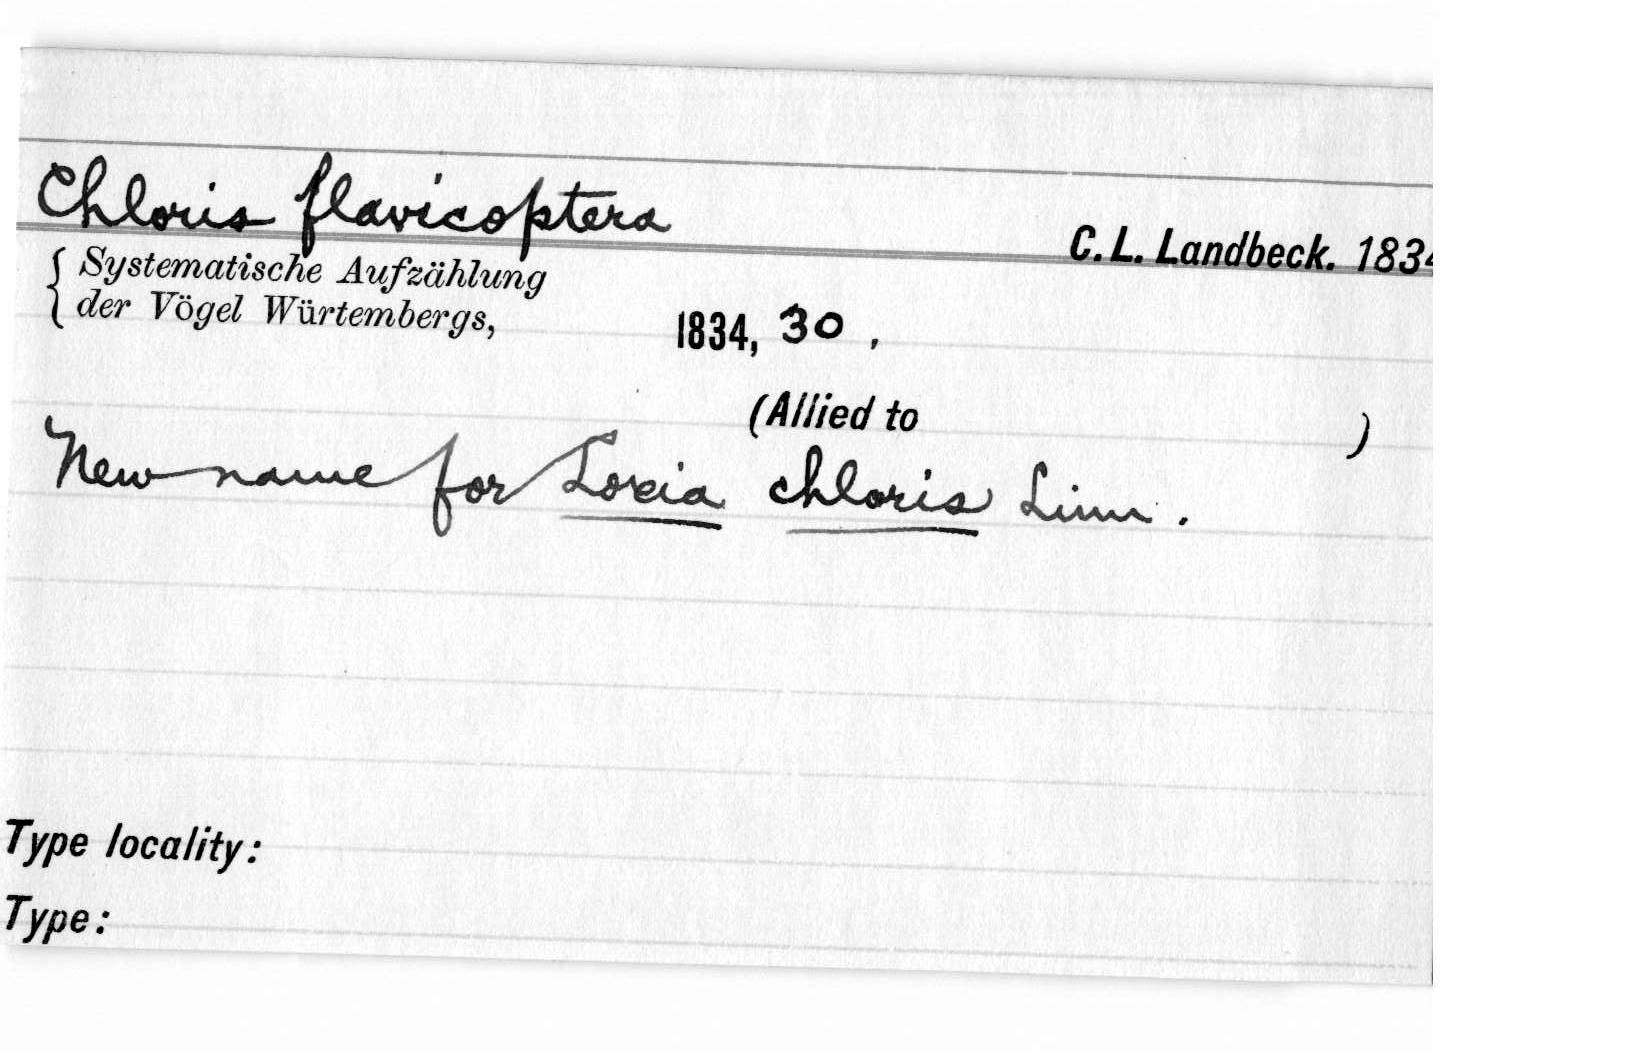 Chloris flavicoptera
C. L. Landbeck. 1834
Systematische Aufzählung
der Vögel Würtembergs,
1834, 30 .
(Allied to )
New name for Loxia chloris Linn.
Type locality:
Type: